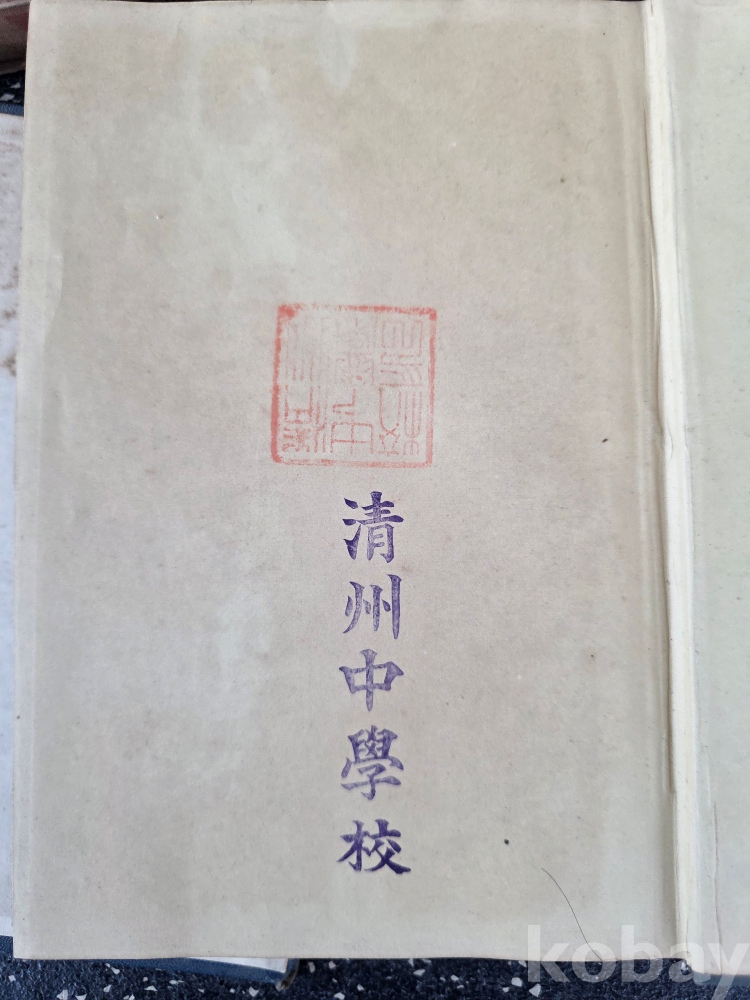 清州中學校
kobay